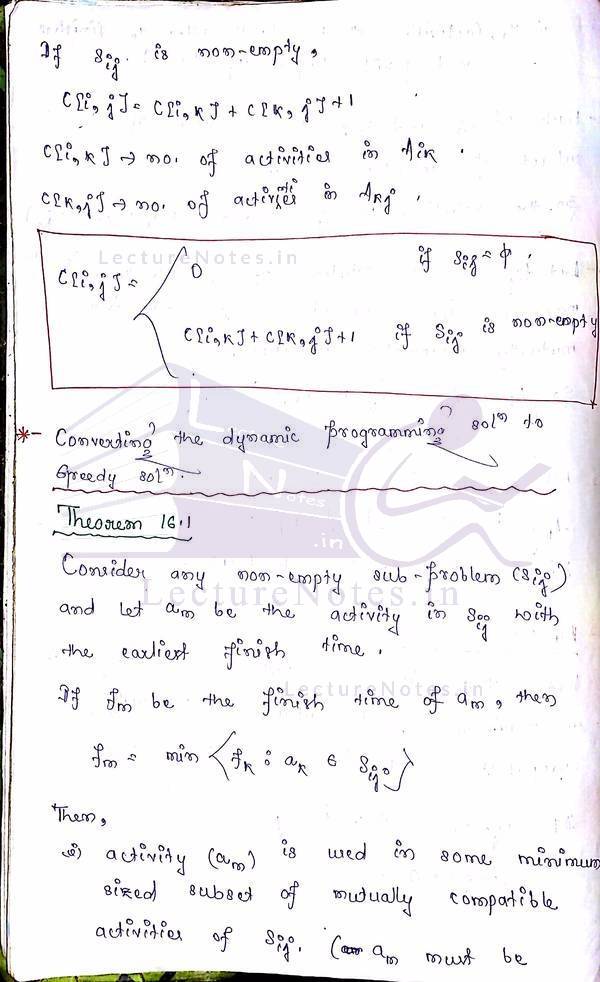 If Sij is non-empty,
C[i, j] = C[i, k] + C[k, j] + 1
C[i, k] → no. of activities in Aik .
C[k, j] → no. of activities in Akj .
LectureNotes.in
C[i, j] = 0 if Sij = φ .
C[i, k] + C[k, j] + 1 if Sij is non-empty
*- Converting the dynamic programming solⁿ to
Greedy solⁿ.
Notes
.in
Theorem 16.1
Consider any non-empty sub-problem (Sij)
LectureNotes.in
and let am be the activity in Sij with
the earliest finish time .
LectureNotes.in
If fm be the finish time of am, then
fm = min {fk : ak ∈ Sij}
Then,
i) activity (am) is used in some minimum
sized subset of mutually compatible
activities of Sij. (am must be